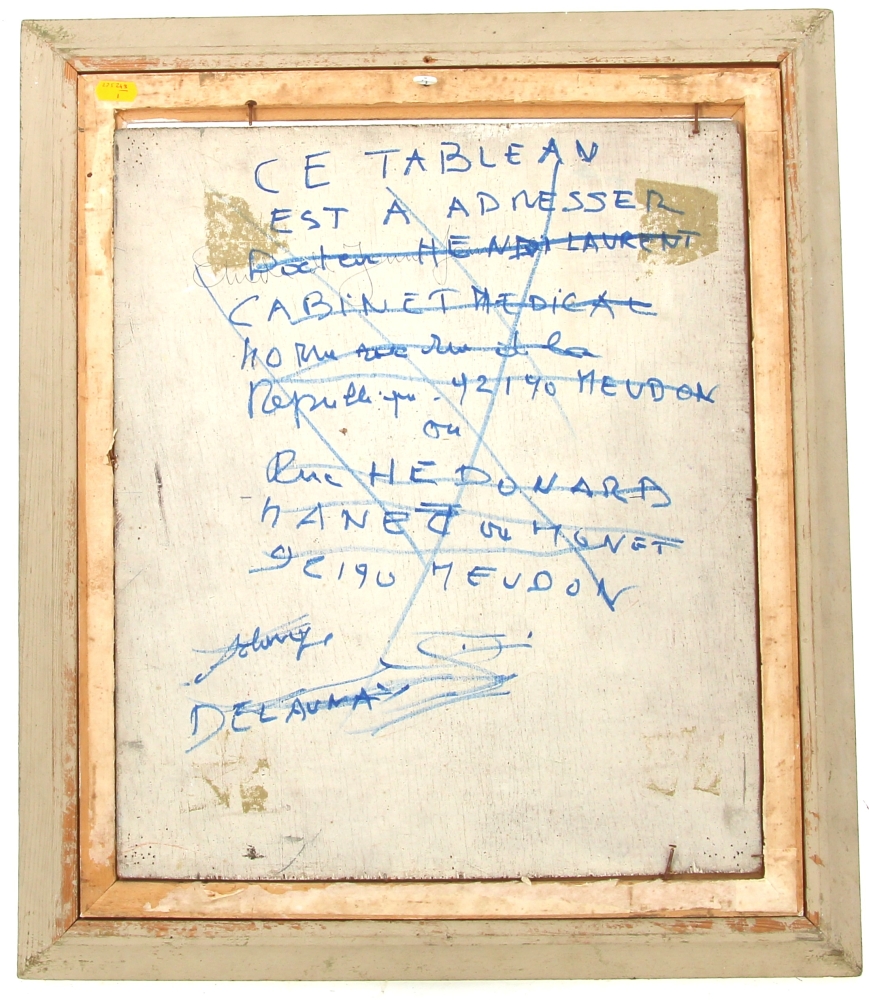 CE TABLEAU
EST A ADRESSER
Docteur HENRI LAURENT
CABINET MEDICAL
rue de la
République - 92190 MEUDON
ou
Rue HEDOUARD
MANET ou MONET
92190 MEUDON
DELAUNAY